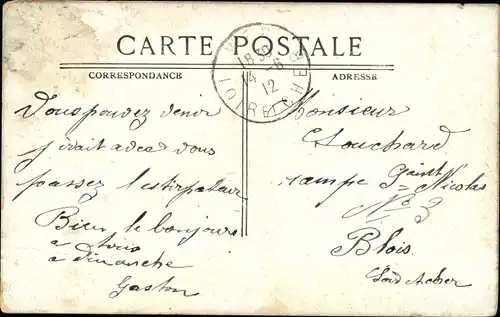 CARTE POSTALE
CORRESPONDANCE
ADRESSE
18 30
14 - 6
12
LOIR-ET-CHER
Vous pouvez venir
j'irait avec vous
passez l'estirpateur
Bien le bonjours
a tous
a Dimanche
Gaston
Monsieur
Louchard
rampe Saint Nicolas
No 3
Blois
Loir et cher